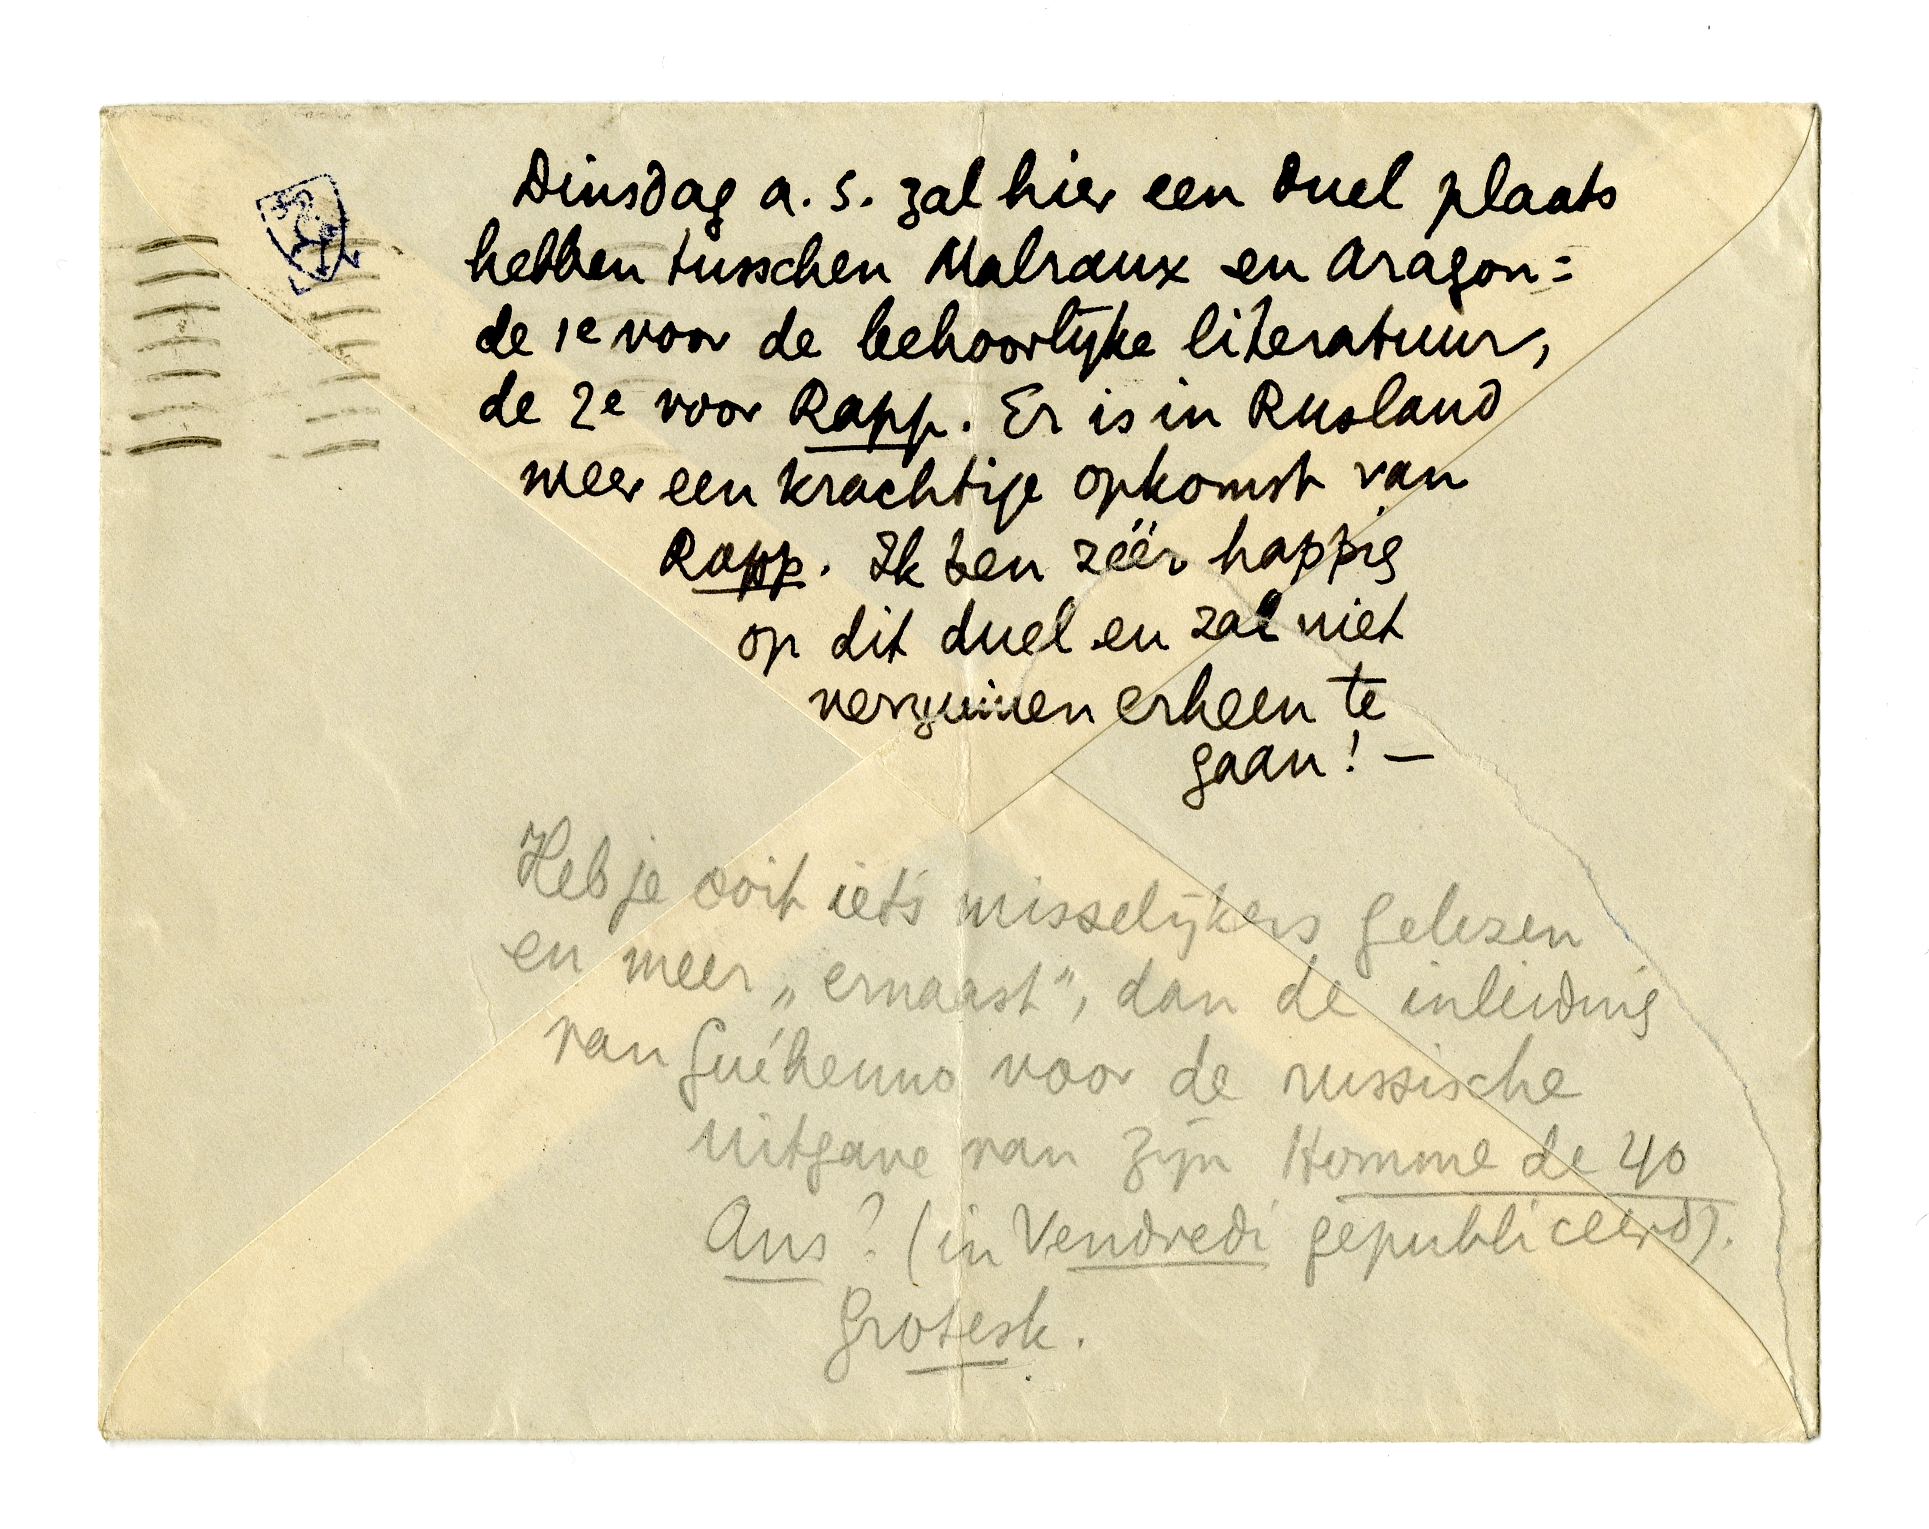 Dinsdag a.s. zal hier een duel plaats
hebben tusschen Malraux en Aragon:
de 1e voor de behoorlijke literatuur,
de 2e voor Rapp. Er is in Rusland
weer een krachtige opkomst van
Rapp. Ik ben zéér happig
op dit duel en zal niet
verzuimen erheen te
gaan! —
Heb je ooit iets misselijkers gelezen
en meer „ernaast”, dan de inleiding
van Guéhenno voor de russische
uitgave van zijn Homme de 40
Ans? (in Vendredi gepubliceerd).
Grotesk.